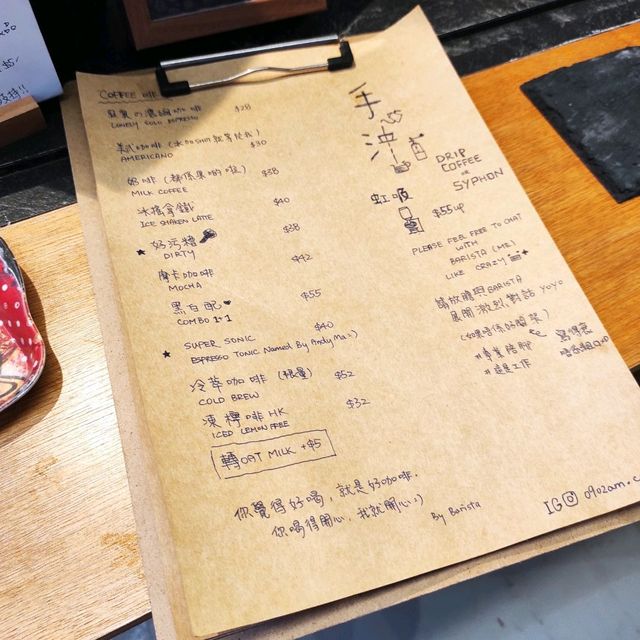 COFFEE 啡
寂寞の濃縮咖啡 $28
LONELY SOLO ESPRESSO
美式咖啡
AMERICANO $30
奶啡 $38
MILK COFFEE
冰搖拿鐵 $40
ICE SHAKEN LATTE
★ 好污糟 $38
DIRTY
摩卡咖啡 $42
MOCHA
黑白配 ♥ $55
COMBO 1+1
★ SUPER SONIC $40
ESPRESSO TONIC Named By Andy Ma:)
冷萃咖啡 (限量) $52
COLD BREW
凍檸啡 HK $32
ICED LEMON FFEE
轉OAT MILK +$5
你覺得好喝，就是好咖啡.
你喝得開心，我就開心:)
By Barista
手沖
DRIP
COFFEE
OR
SYPHON
虹吸
$55 up
PLEASE FEEL FREE TO CHAT
WITH
BARISTA (ME)
LIKE CRAZY
請放膽與BARISTA
展開激烈對話 YOYO
(如果唔係好鬧茶)
#專業陪聊
#這是工作
IG 0902am.c